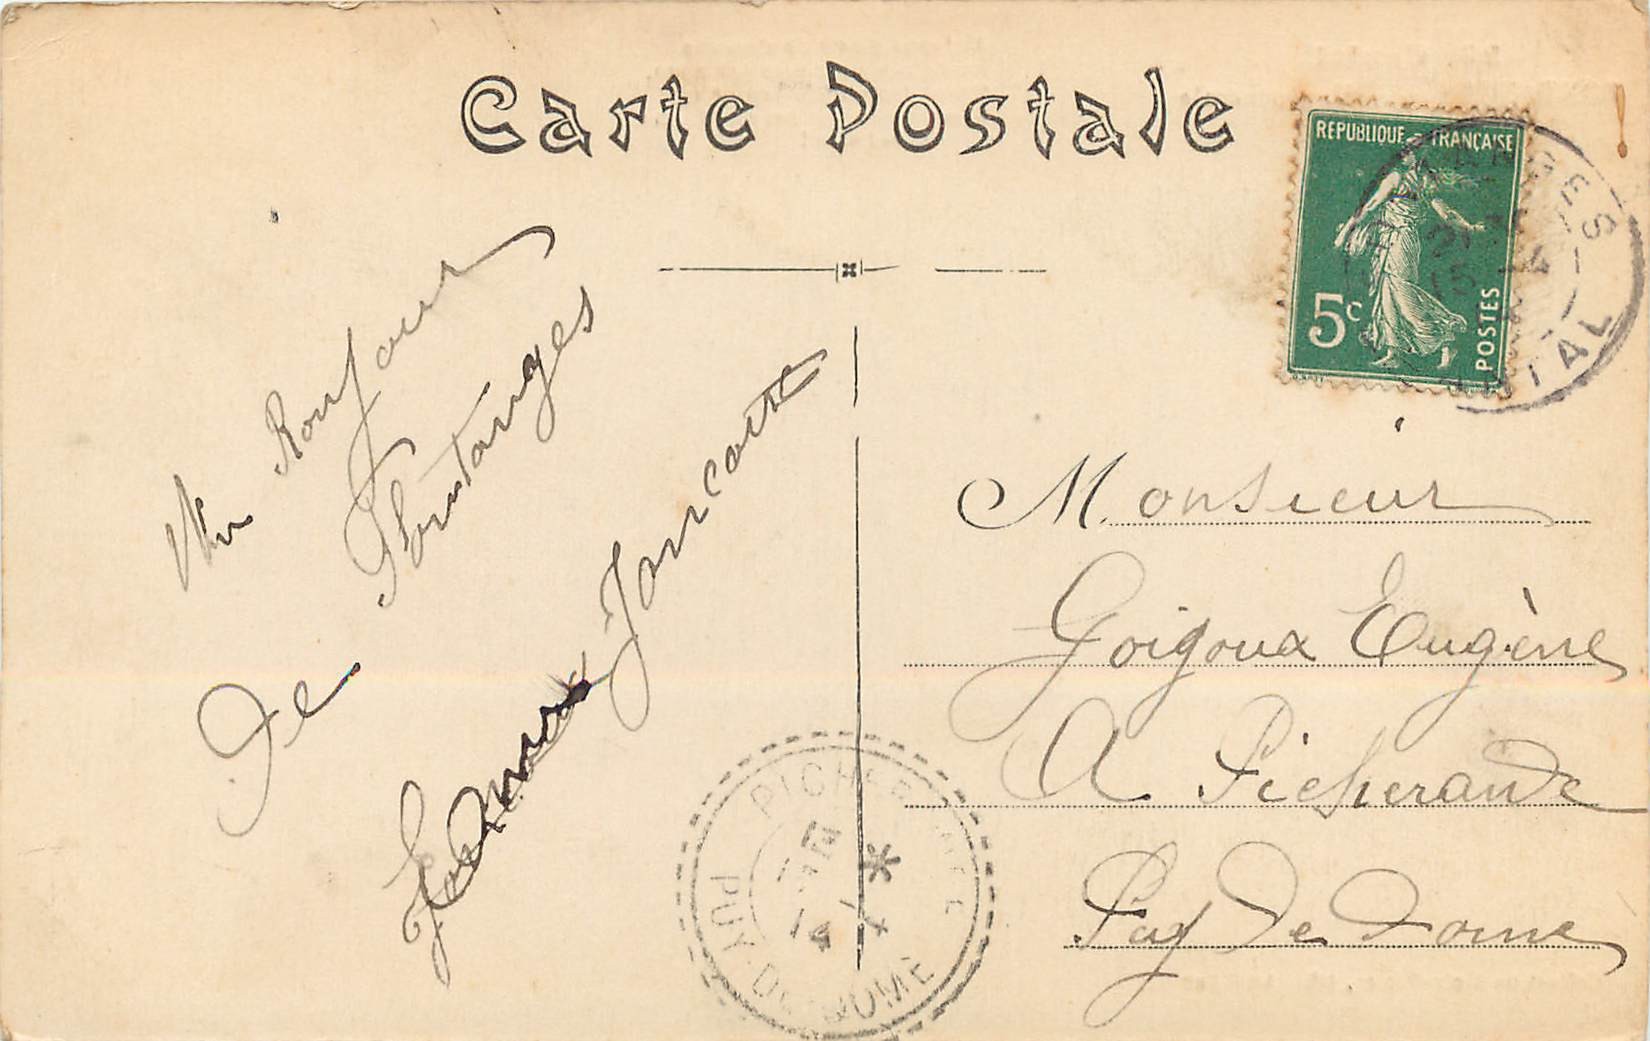 Carte Postale
REPUBLIQUE FRANÇAISE
5c
POSTES
Un Bonjour
De Fontanges
Monsieur
Goigoux Eugène
A Picherande
Puy De Dome
PICHERANDE
PUY-DE-DOME